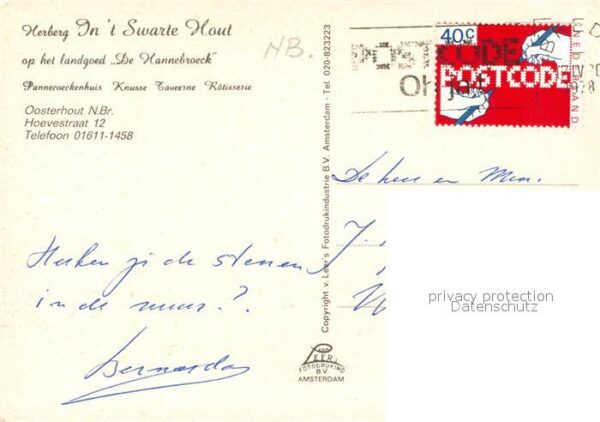 Herberg In 't Swarte Hout
op het landgoed „De Hannebroeck"
Pannecoeckenhuis Knusse Taveerne Rôtisserie
Oosterhout N.Br.
Hoevestraat 12
Telefoon 01611-1458
NB.
Copyright v. Leer's Fotodrukindustrie B.V. Amsterdam - Tel. 020-823223
POSTCODE
40c
POSTCODE
NEDERLAND
De heer en Mevr.
J.
Herken je de stenen
in de muur?
Bernarda
VAN LEER
FOTODRUKIND
B.V.
AMSTERDAM
privacy protection
Datenschutz